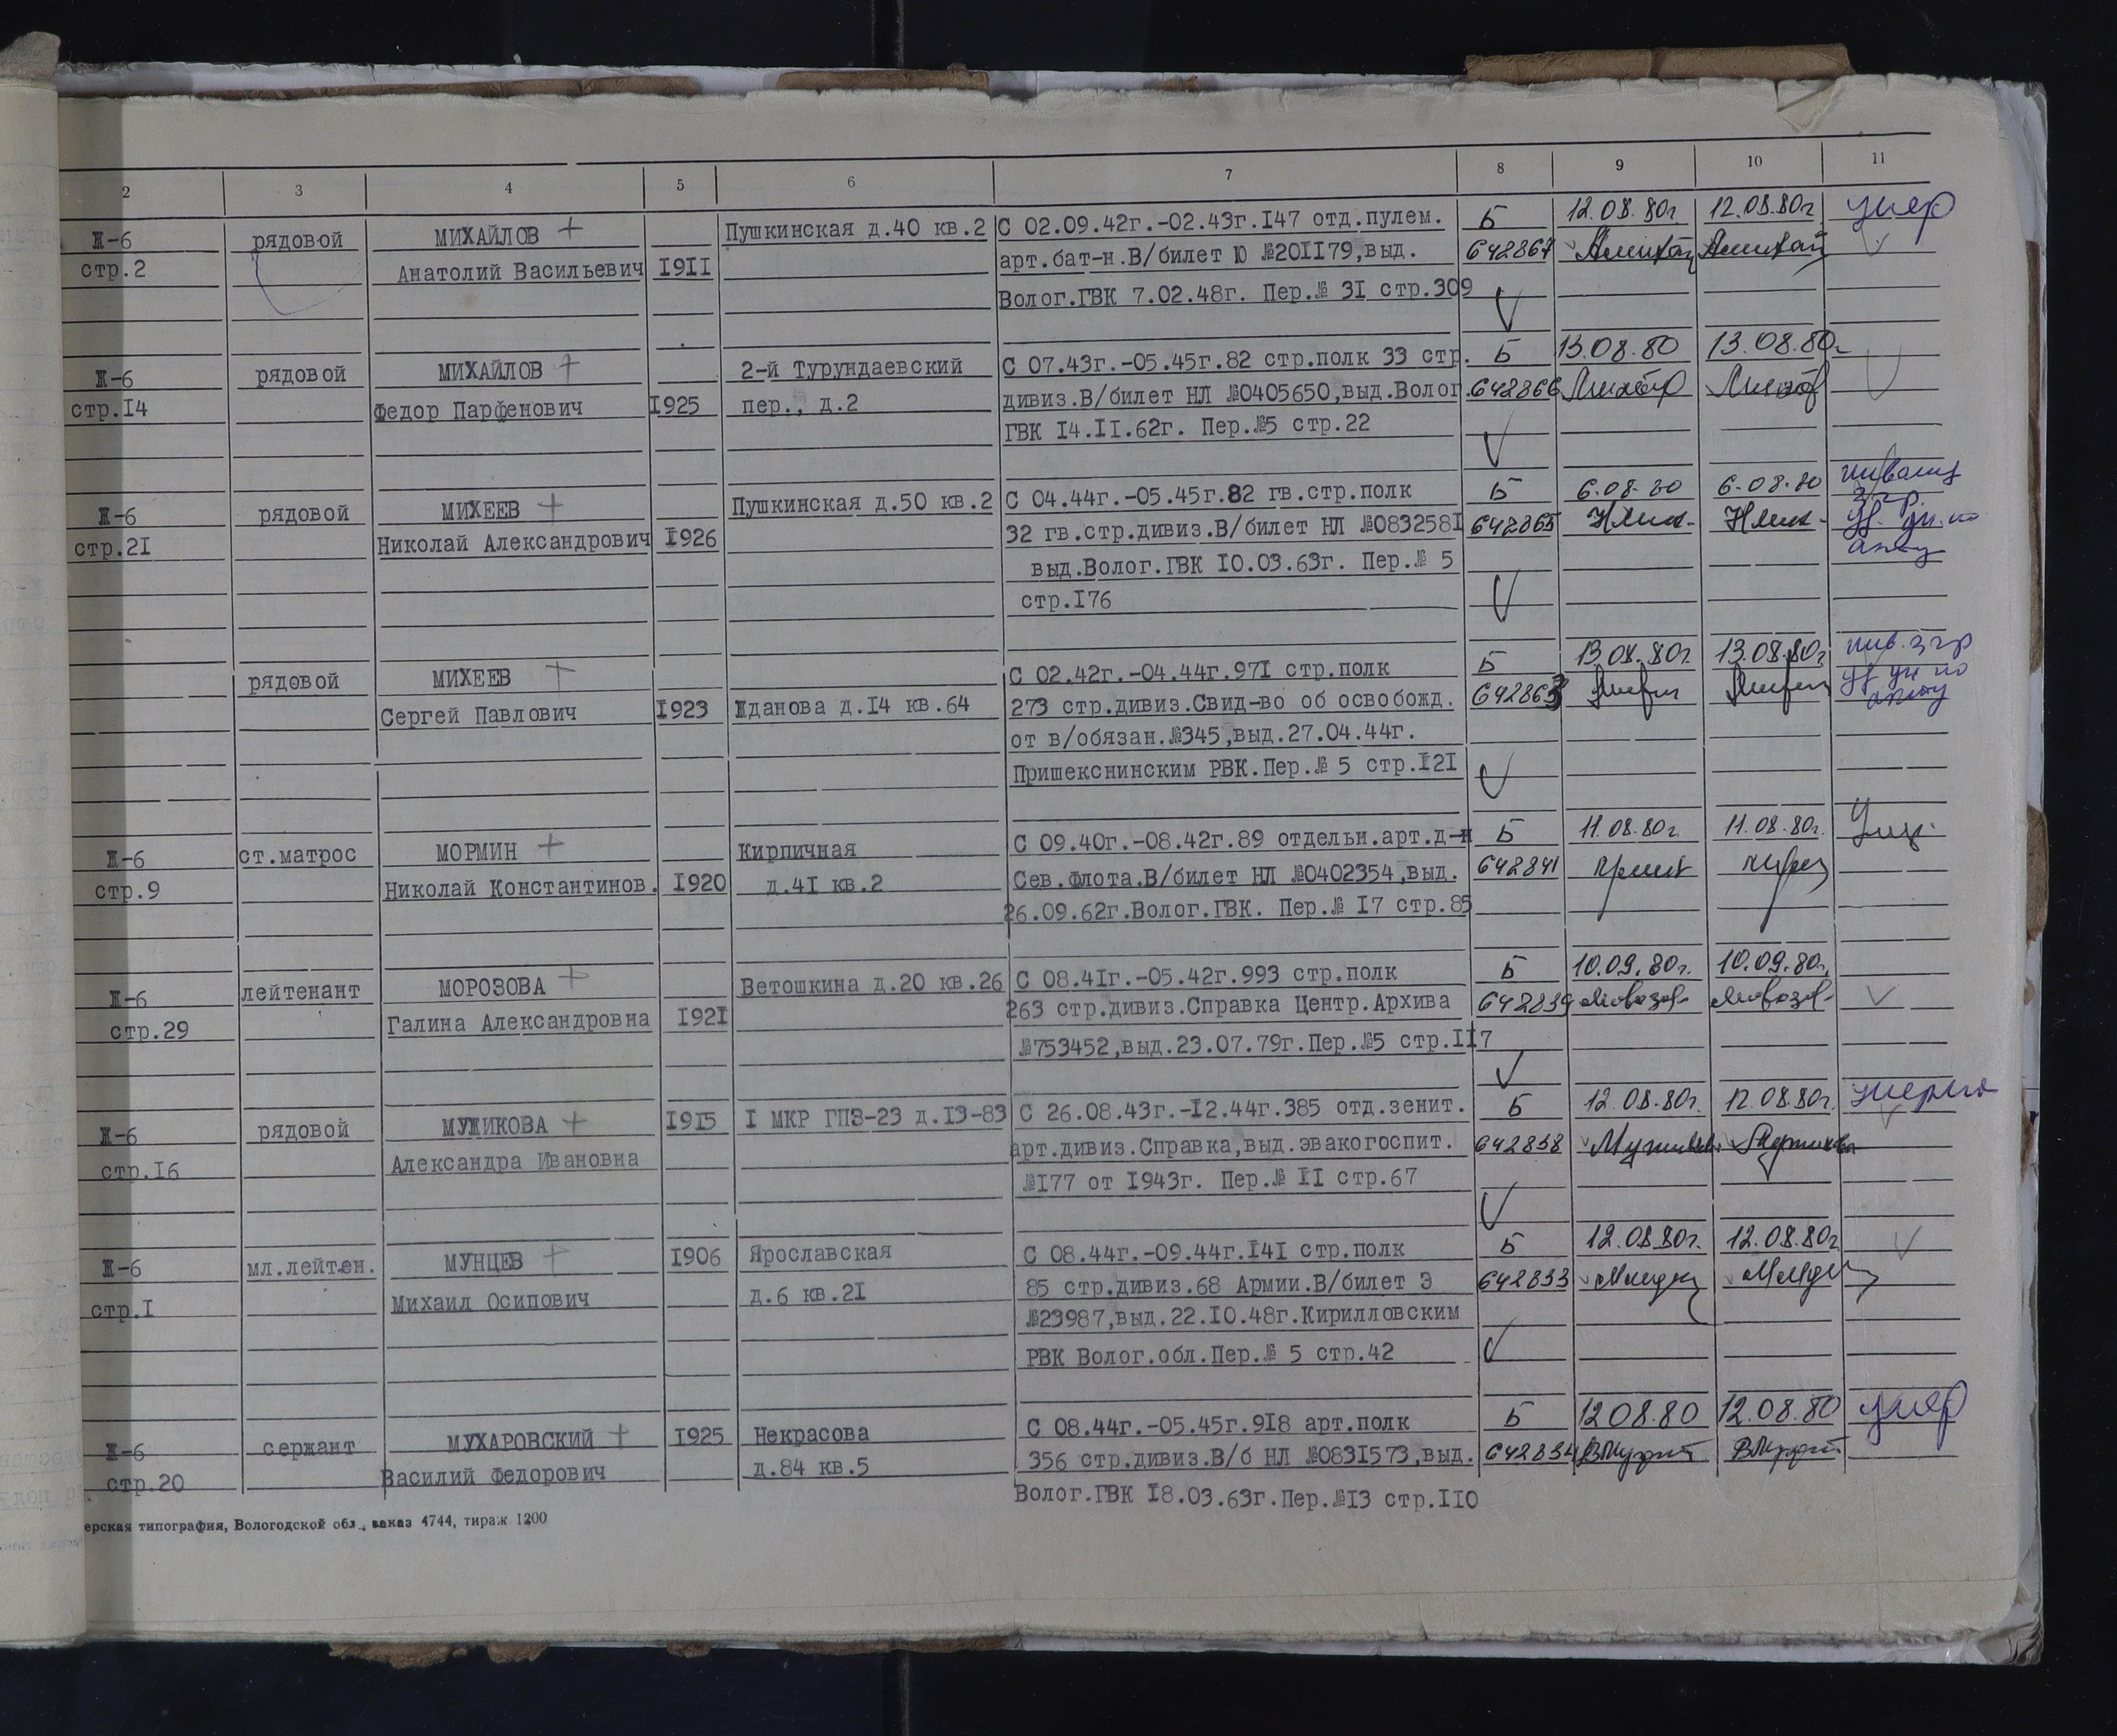 2 3 4 5 6 7 8 9 10 11
МИХАЙЛОВ + Пушкинская д.40 кв.2 С 02.09.42г.-02.43г.147 отд.пулем. Б 12.08.80г 12.08.80г. умер
Ж-6 рядовой Анатолий Васильевич 1911 арт.бат-н.В/билет Ю №201179,выд. 642867
стр.2 Волог.ГВК 7.02.48г. Пер.№ 31 стр.309
Ж-6 рядовой МИХАЙЛОВ + 2-й Турундаевский С 07.43г.-05.45г.82 стр.полк 33 стр. Б 13.08.80 13.08.80г
стр.14 Федор Парфенович 1925 пер., д.2 дивиз.В/билет НЛ №0405650,выд.Волог. 642866
ГВК 14.11.62г. Пер.№5 стр.22
Ж-6 рядовой МИХЕЕВ + Пушкинская д.50 кв.2 С 04.44г.-05.45г.82 гв.стр.полк Б 6.08.80 6.08.80
стр.21 Николай Александрович 1926 32 гв.стр.дивиз.В/билет НЛ №0832581 642865
выд.Волог.ГВК 10.03.63г. Пер.№ 5
стр.176
рядовой МИХЕЕВ + С 02.42г.-04.44г.971 стр.полк Б 13.08.80г. 13.08.80г. инв. 3 гр
Сергей Павлович 1923 Жданова д.14 кв.64 273 стр.дивиз.Свид-во об освобожд. 642863
от в/обязан.№345,выд.27.04.44г.
Пришекснинским РВК.Пер.№ 5 стр.121
Ж-6 ст.матрос МОРМИН + Кирпичная С 09.40г.-08.42г.89 отдельн.арт.д-н Б 11.08.80г. 11.08.80г.
стр.9 Николай Константинов. 1920 д.41 кв.2 Сев.флота.В/билет НЛ №0402354,выд. 642841
26.09.62г.Волог.ГВК. Пер.№ 17 стр.85
Ж-6 лейтенант МОРОЗОВА + Ветошкина д.20 кв.26 С 08.41г.-05.42г.993 стр.полк Б 10.09.80г. 10.09.80г.
стр.29 Галина Александровна 1921 263 стр.дивиз.Справка Центр.Архива 642839
№753452,выд.23.07.79г.Пер.№5 стр.117
Ж-6 рядовой МУЖИКОВА + 1915 1 МКР ГПЗ-23 д.13-83 С 26.08.43г.-12.44г.385 отд.зенит. Б 12.08.80г. 12.08.80г. умерла
стр.16 Александра Ивановна арт.дивиз.Справка,выд.эвакогоспит. 642838
№177 от 1943г. Пер.№ 11 стр.67
Ж-6 мл.лейтен. МУНЦЕВ + 1906 Ярославская С 08.44г.-09.44г.141 стр.полк Б 12.08.80г. 12.08.80г
стр.1 Михаил Осипович д.6 кв.21 85 стр.дивиз.68 Армии.В/билет Э 642833
№23987,выд.22.10.48г.Кирилловским
РВК Волог.обл.Пер.№ 5 стр.42
Ж-6 сержант МУХАРОВСКИЙ + 1925 Некрасова С 08.44г.-05.45г.918 арт.полк Б 12 08.80 12.08.80 умер
стр.20 Василий Федорович д.84 кв.5 356 стр.дивиз.В/б НЛ №0831573,выд. 642834
Волог.ГВК 18.03.63г.Пер.№13 стр.110
ерская типография, Вологодской обл., заказ 4744, тираж 1200